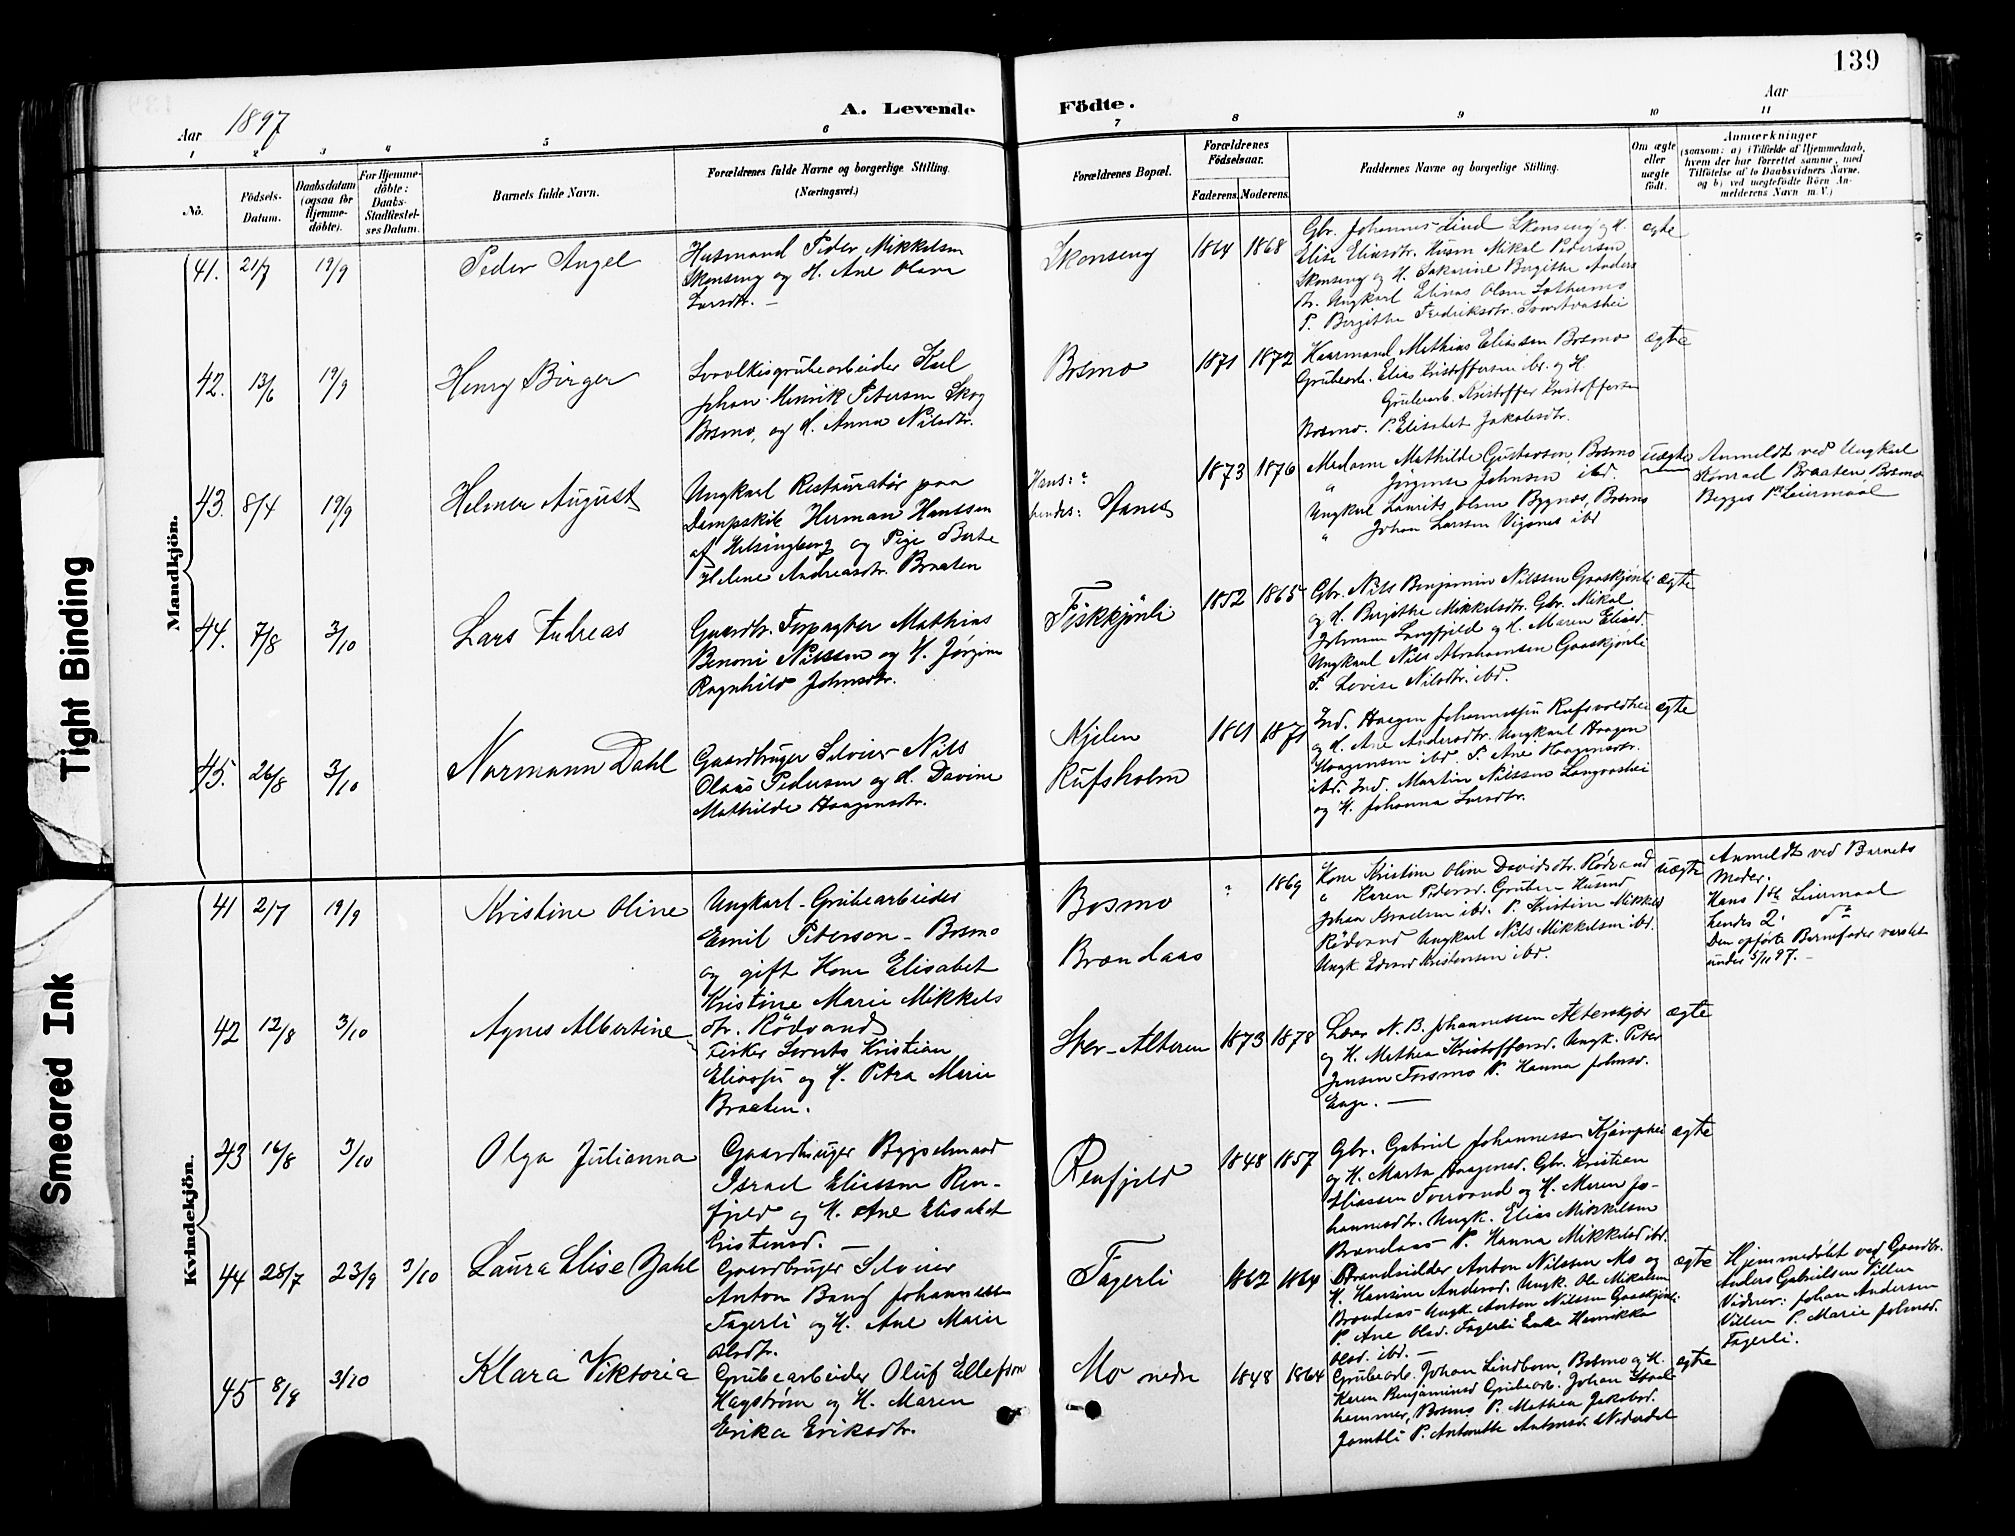 139
Aar 1897
A. Levende Födte.
Aar
1 2 3 4 5 6 7 8 9 10 11
No.
Födsels-Datum.
Daabsdatum (ogsaa för Hjemme-döbte).
For Hjemme-döbte: Daabs-Stadfæstel-ses Datum.
Barnets fulde Navn.
Forældrenes fulde Navne og borgerlige Stilling. (Næringsvei.)
Forældrenes Bopæl.
Forældrenes Födselsaar.
Faderens. Moderens.
Faddernes Navne og borgerlige Stilling.
Om ægte eller uægte födt.
Anmærkninger
(saasom: a) i Tilfælde af Hjemmedaab, hvem der har forrettet samme, med Tilföielse af to Daabsvidners Navne, og b) ved uægtefödte Börn An-melderens Navn m. V.)
Mandkjön.
41. 21/7 19/9 Peder Angel
Husmand Peder Mikkelsen
Skonseng og H. Ane Olava
Larsdtr. —
Skonseng 1864 1868
Gbr. Johannes Lind Skonseng og H.
Elise Eliasdtr. Husm Mikal Pedersen
Skonseng og H. Sakarine Birgithe Anders
dtr. Ungkarl Elinas Olsen
P. Birgithe Fredriksdtr. Svartvashei
ægte
42. 13/6 19/9 Henry Birger
Svovlkisgrubearbeider Karl
Johan Henrik Peterson Skog
Bosmo, og H. Anna Nilsdtr.
Bosmo 1871 1872
Kaarmand Mathias Eliassen Bosmo
Grubearb. Elias Kristoffersen ibd. og H.
Grubearb. Kristoffer Kristoffersen
Bosmo. P. Elisabet Jakobsdtr.
ægte
43. 8/4 19/9 Helmer August
Ungkarl Restauratør paa
Dampskib Herman Hanssen
af Helsingborg og Pige Berte
Helene Andreasdtr. Braaten
Hans: ?
hendes: Ranes
1873 1876
Madame Mathilde Gustavson, Bosmo
" Jørgense Johnsen ibd
Ungkarl Laurits Olsen Bygnæs, Bosmo
" Johan Larssen Vignes ibd
uægte
Anmeldt ved Ungkarl
Konrad Braaten, Bosmo
Begges 1ste Leiermaal
44. 7/8 3/10 Lars Andreas
Gaardbr. Forpagter Mathias
Benoni Nilssen og H. Jørgine
Ragnhild Johnsdtr.
Fiskkjønli 1852 1865
Gbr. Nils Benjamin Nilssen Gaaskjønli
og H. Birgithe Mikkelsdtr. Gbr. Mikal
Johnsen Langfjeld og H. Maren Eliasd.
Ungkarl Nils Abrahamsen Gaaskjønli
P. Lovise Nilsdtr. ibd.
ægte
45. 26/8 3/10 Normann Dahl
Gaardbruger Selveier Nils
Olaus Pedersen og H. Davine
Mathilde Haagensdtr.
Hjelen
Rufsholm
1861 1871
Ind. Haagen Johannessen Rufsvoldhei
og H. Ane Andersdtr. Ungkarl Haagen
Haagensen ibd. P. Ane Haagensdtr.
ibd. Ind. Martin Nilssen Langvashei
og H. Johanna Larsdtr.
ægte
Kvindekjön.
41 2/7 19/9 Kristine Oline
Ungkarl - Grubearbeider
Emil Peterson - Bosmo
og gift Kone Elisabet
Kristine Marie Mikkels
dtr. Rödvand
Bosmo
Brændaas
? 1869
Kone Kristine Oline Davidsdtr. Rødvand
" Karen Pedersd.
Johan Israelsen ibd. P. Kristine Mikkelsd
Rødvand Ungkarl Nils Mikkelsen ibd.
Ungk. Edvard Kristensen ibd.
uægte
Anmeldt ved Barnets
Moder.
Hans 1ste Leiermaal
hendes 2. do
Den opførte Barnefader varslet
under 5/11 97. —
42 12/8 3/10 Agnes Albertine
Fisker Lorents Kristian
Eliassen og H. Petra Marie
Braaten.
Stor-Alteren 1873 1878
Lærer N. B. Johannessen Alterskjær
og H. Mathea Kristoffersd. Ungk. Peter
Jensen Forsmo P. Hanna Johnsd.
—
ægte
43 16/8 3/10 Olga Julianna
Gaardbruger Bygselmand
Israel Eliassen Ren-
fjeld og H. Ane Elisabet
Kristensd. —
Renfjeld 1848 1857
Gbr. Gabriel Johannessen Kjæmphei
og H. Marta Haagensd. Gbr. Kristian
Eliassen Tvervand og H. Maren Jo-
hannesdtr. Ungk. Elias Mikkelsen
Brændaas P. Hanna Mikkelsd ibd.
ægte
44 28/7 23/9 3/10 Laura Elise Dahl
Gaardbruger Selveier
Anton Bang Johannessen
Fagerli og H. Ane Marie
Olsdtr.
Fagerli 1862 1864
Strandsidder Anton Nilssen Mo og
H. Hansine Andersd. Ungk. Ole Mikalsen
Brændaas Ungk. Anton Nilssen Gaaskjønli
P. Ane Olsd. Fagerli Enke Henrikka
Olsd. ibd. —
ægte
Hjemmedøbt ved Gaardbr.
Anders Gabrielsen Villen
Vidner: Johan Andersen
Villen P. Marie Johnsd.
Fagerli.
45 8/9 3/10 Klara Viktoria
Grubearbeider Oluf Ellefson
Hagstrøm og H. Maren
Erika Eriksdtr.
Mo nedre 1848 1864
Grubearb. Johan Lindbom, Bosmo og H.
Karen Benjaminsd Grubearb. Johan Staal
hammer, Bosmo P. Mathea Jakobsd.
Jamtli P. Antonette Antonsd. Nederdal
ægte
Tight Binding
Smeared Ink